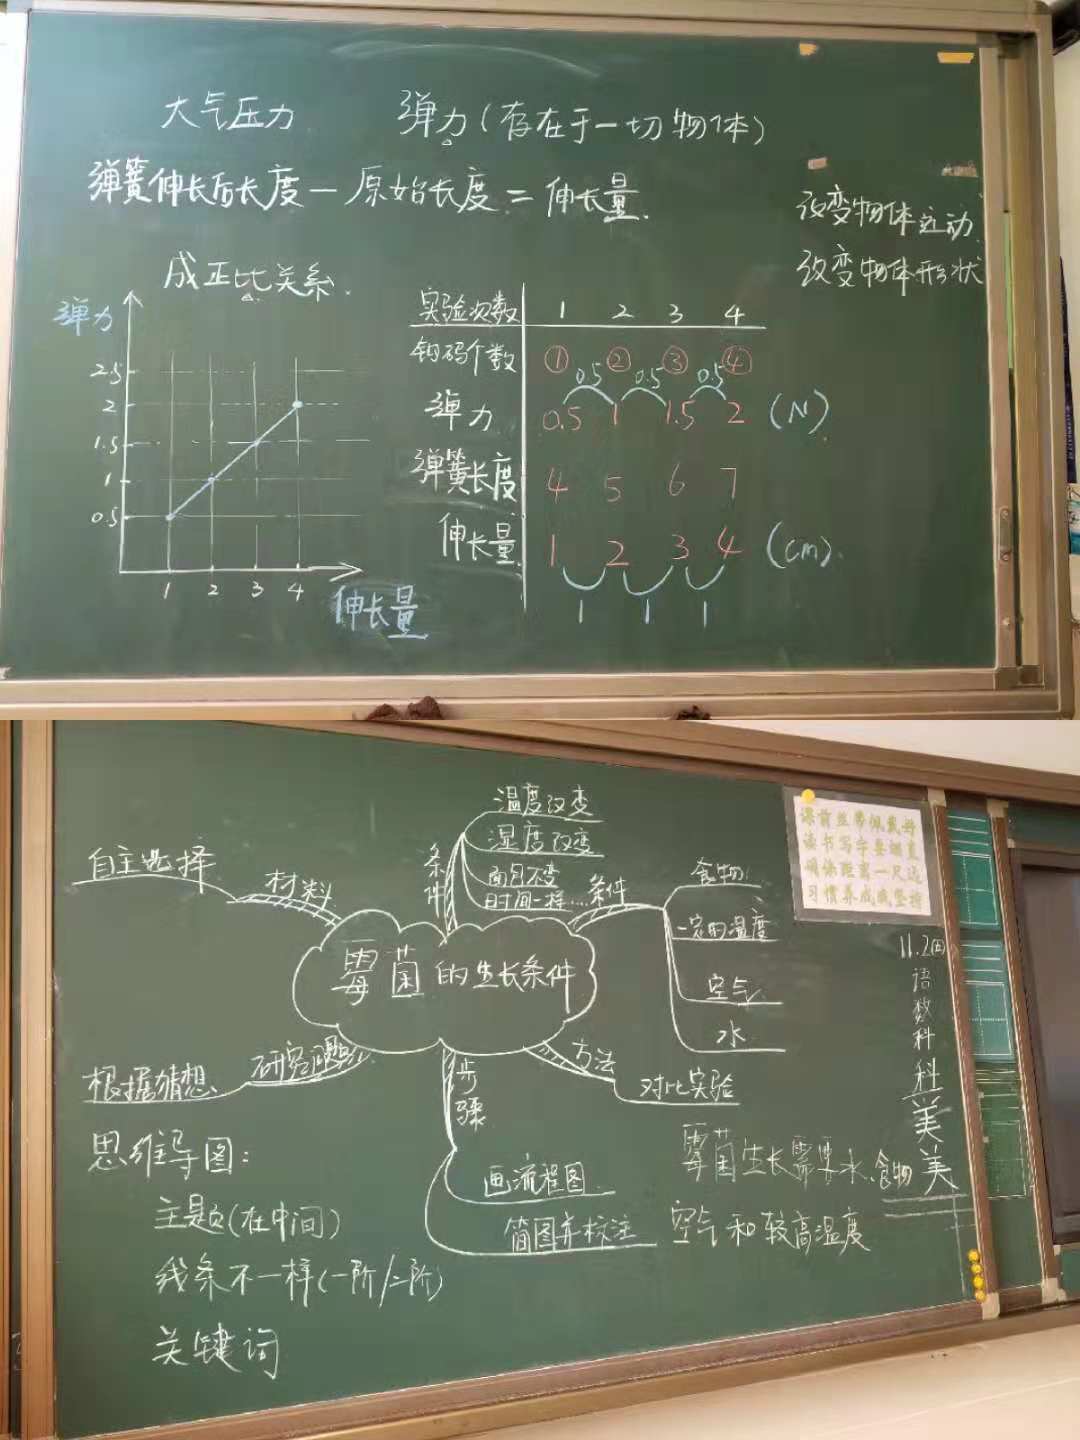 大气压力 弹力(存在于一切物体)
弹簧伸长后长度－原始长度＝伸长量.
改变物体运动
改变物体形状
成正比关系.
弹力
2.5
2
1.5
1
0.5
1 2 3 4
伸长量
实验次数 1 2 3 4
钩码个数 ① ② ③ ④
0.5 0.5 0.5
弹力 0.5 1 1.5 2 (N)
弹簧长度 4 5 6 7
伸长量 1 2 3 4 (cm).
1 1 1
霉菌的生长条件
自主选择
材料
条件
温度改变
湿度改变
时间一样…
条件
食物
一定的温度
空气
水
方法
对比实验
步骤
画流程图
简图并标注
研究问题
根据猜想
思维导图:
主题(在中间)
线条不一样(一阶/二阶)
关键词
霉菌生长需要水.食物
空气和较高温度
11.2
语
数
科
科
美
美
习惯养成